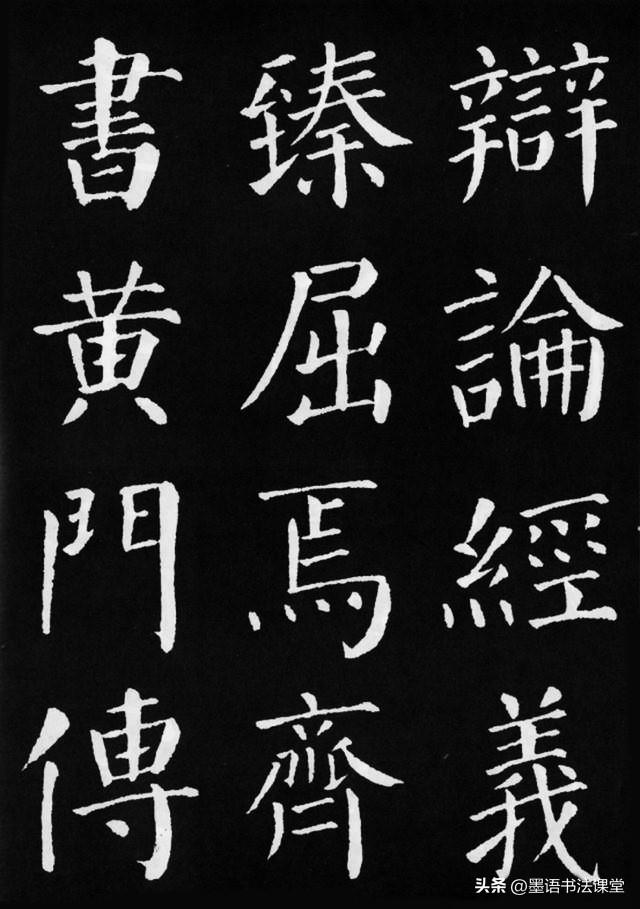 辯論經義
臻屈焉齊
書黄門傳
头条 @墨语书法课堂